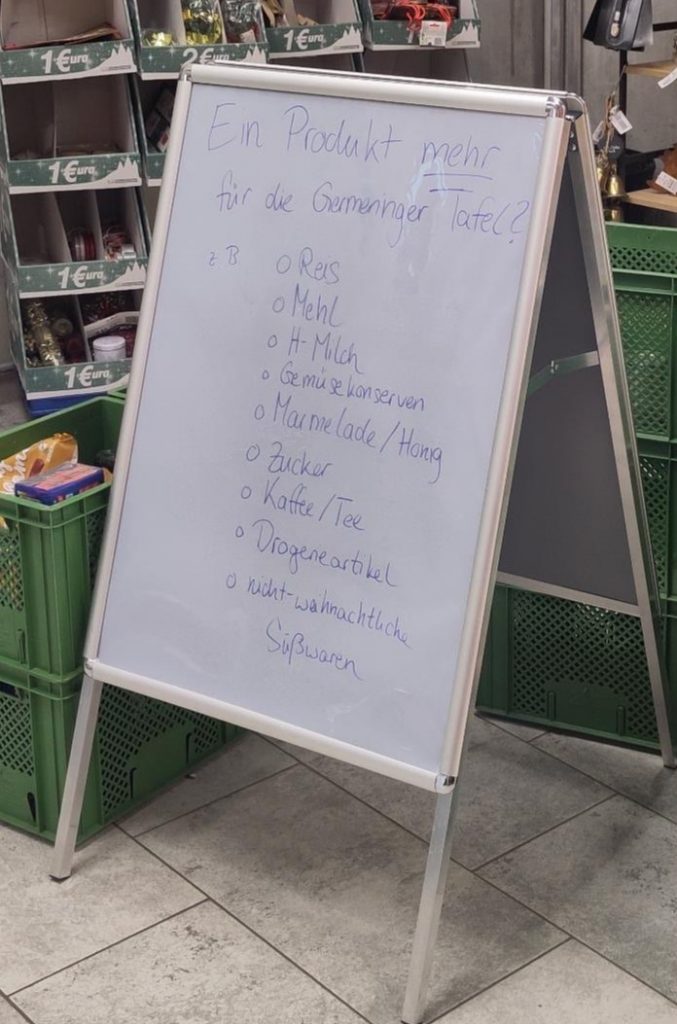 1 €uro
2 €uro
1 €uro
1 €uro
1 €uro
1 €uro
Ein Produkt mehr
für die Germeringer Tafel?
z B o Reis
o Mehl
o H-Milch
o Gemüsekonserven
o Marmelade/Honig
o Zucker
o Kaffee/Tee
o Drogerieartikel
o nicht-weihnachtliche
Süßwaren